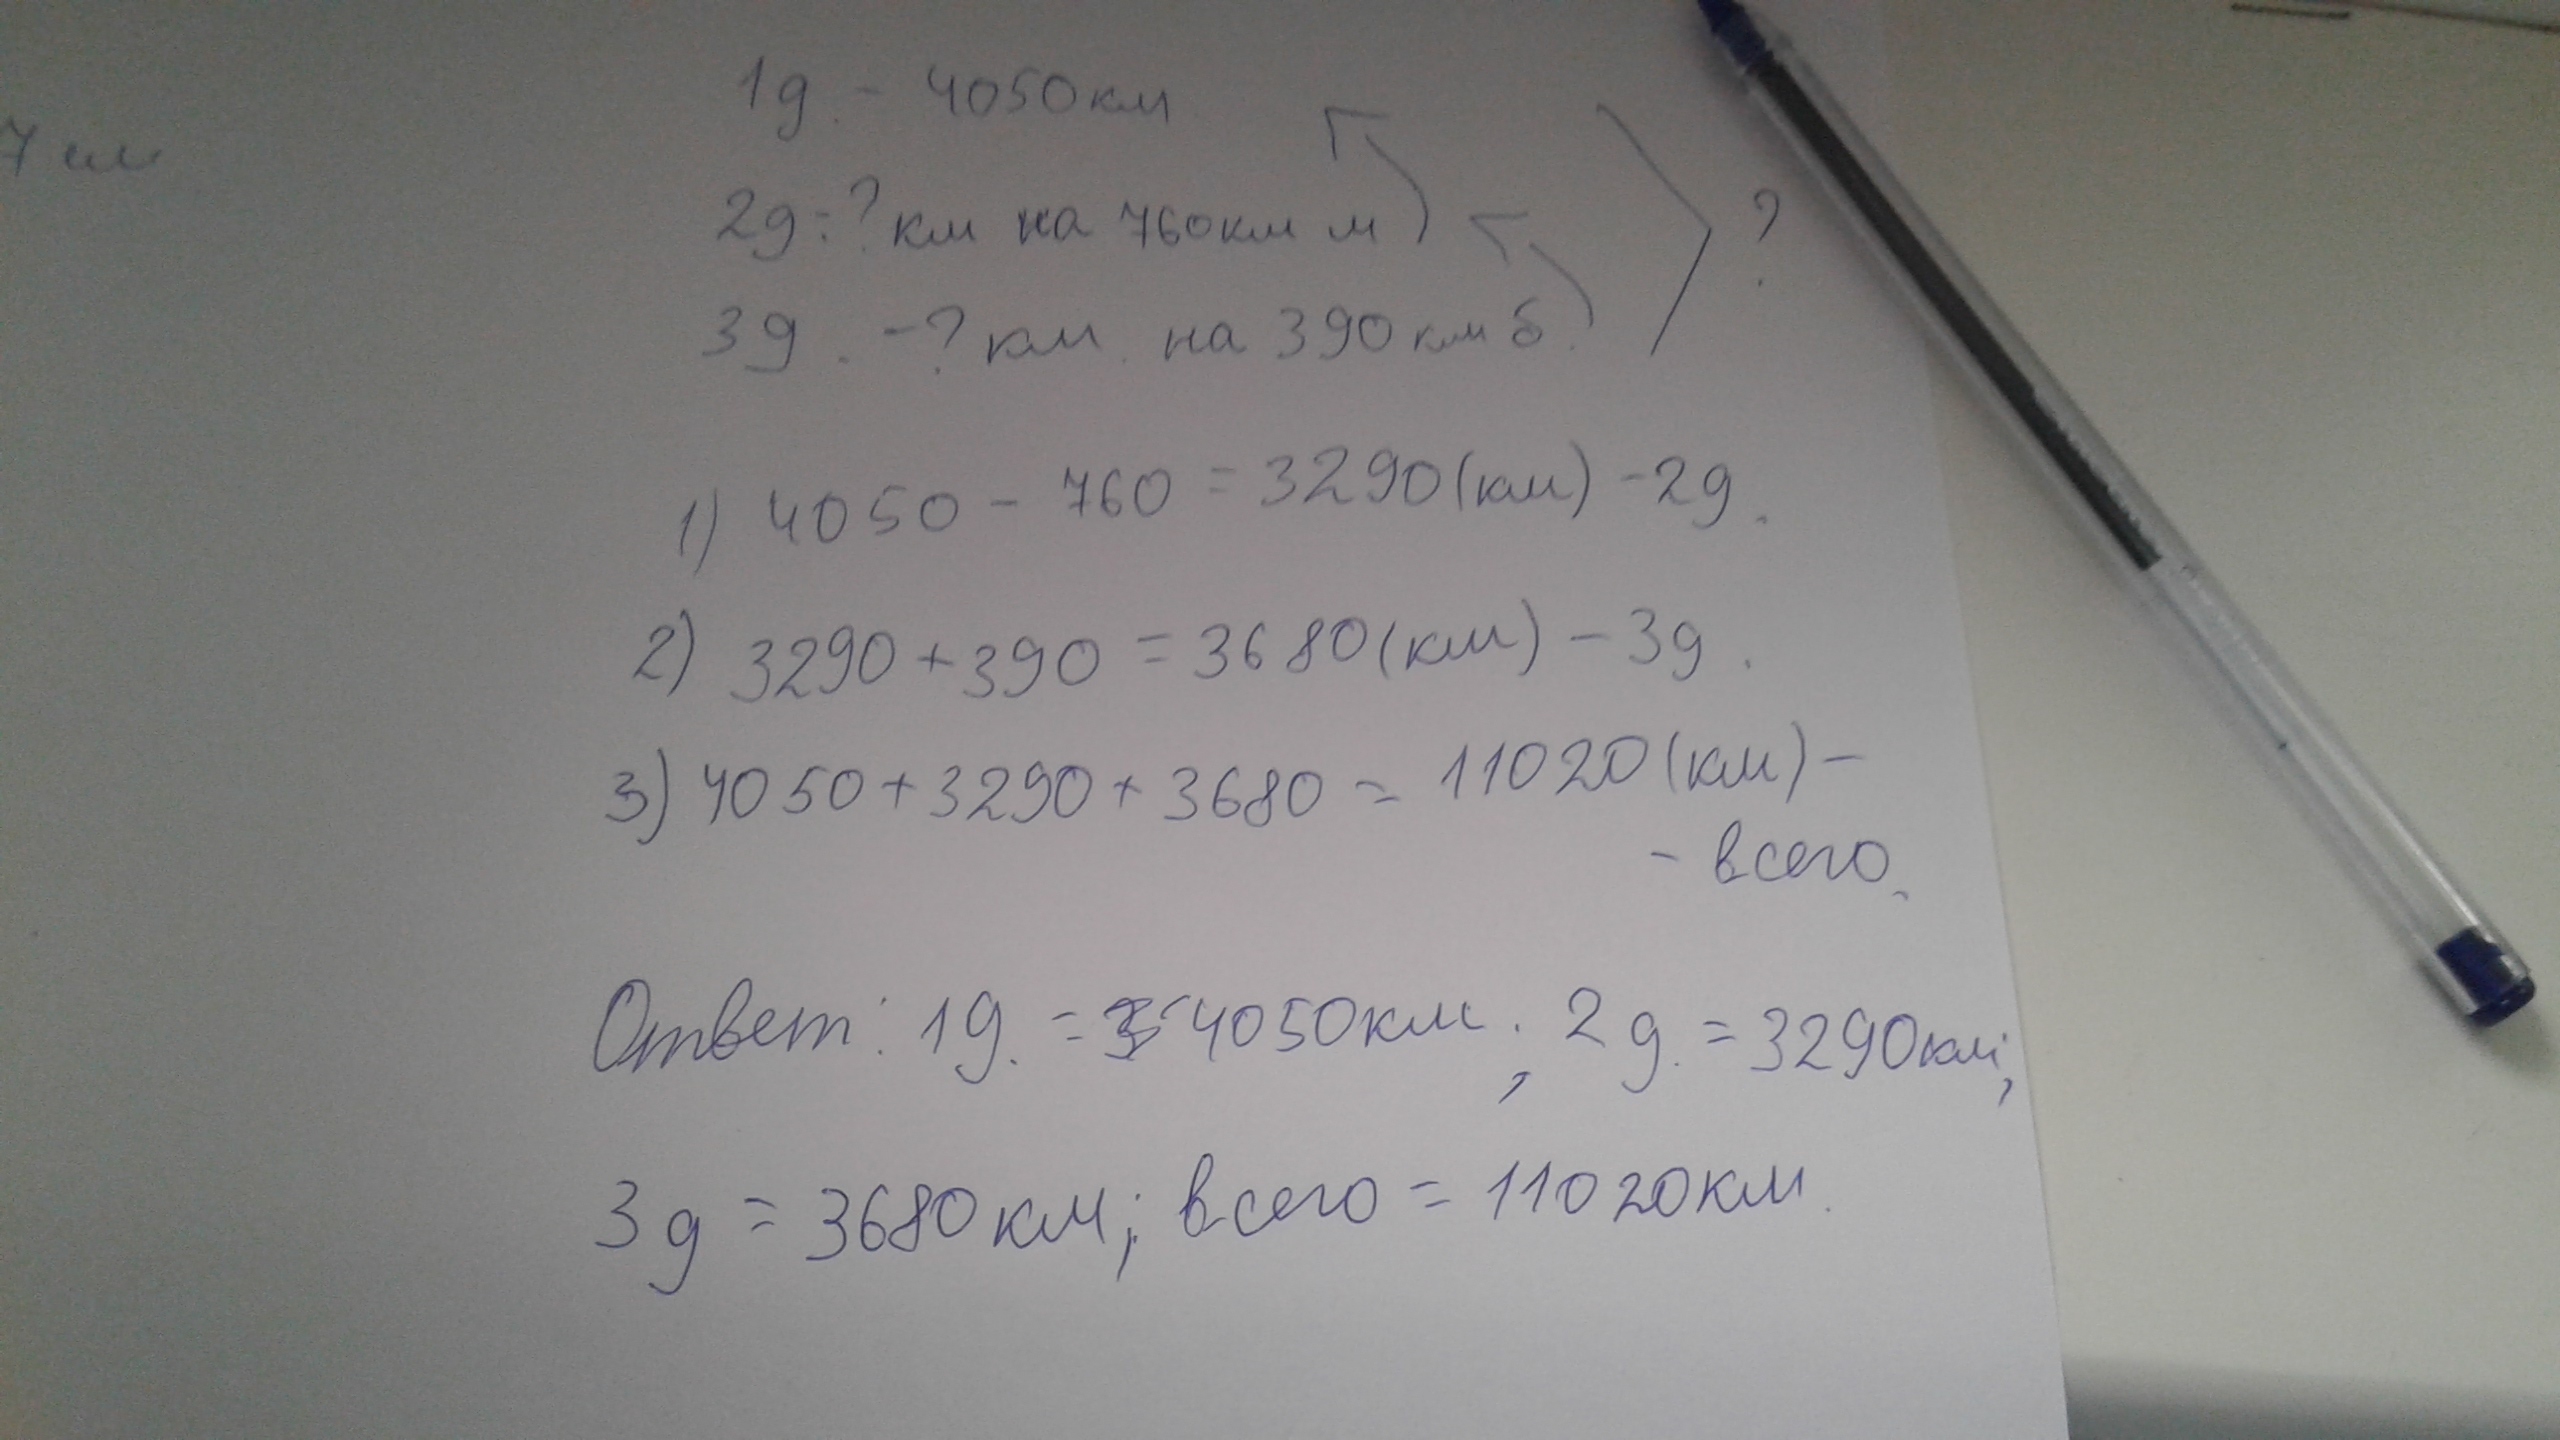 1д. - 4050км
7 см
2д: ? км на 760км м
3д. - ? км. на 390км б.
?
1) 4050 - 760 = 3290(км) - 2д.
2) 3290 + 390 = 3680(км) - 3д.
3) 4050 + 3290 + 3680 = 11020(км) -
- всего.
Ответ: 1д. = 4050км; 2д. = 3290км;
3д = 3680км; всего = 11020км.